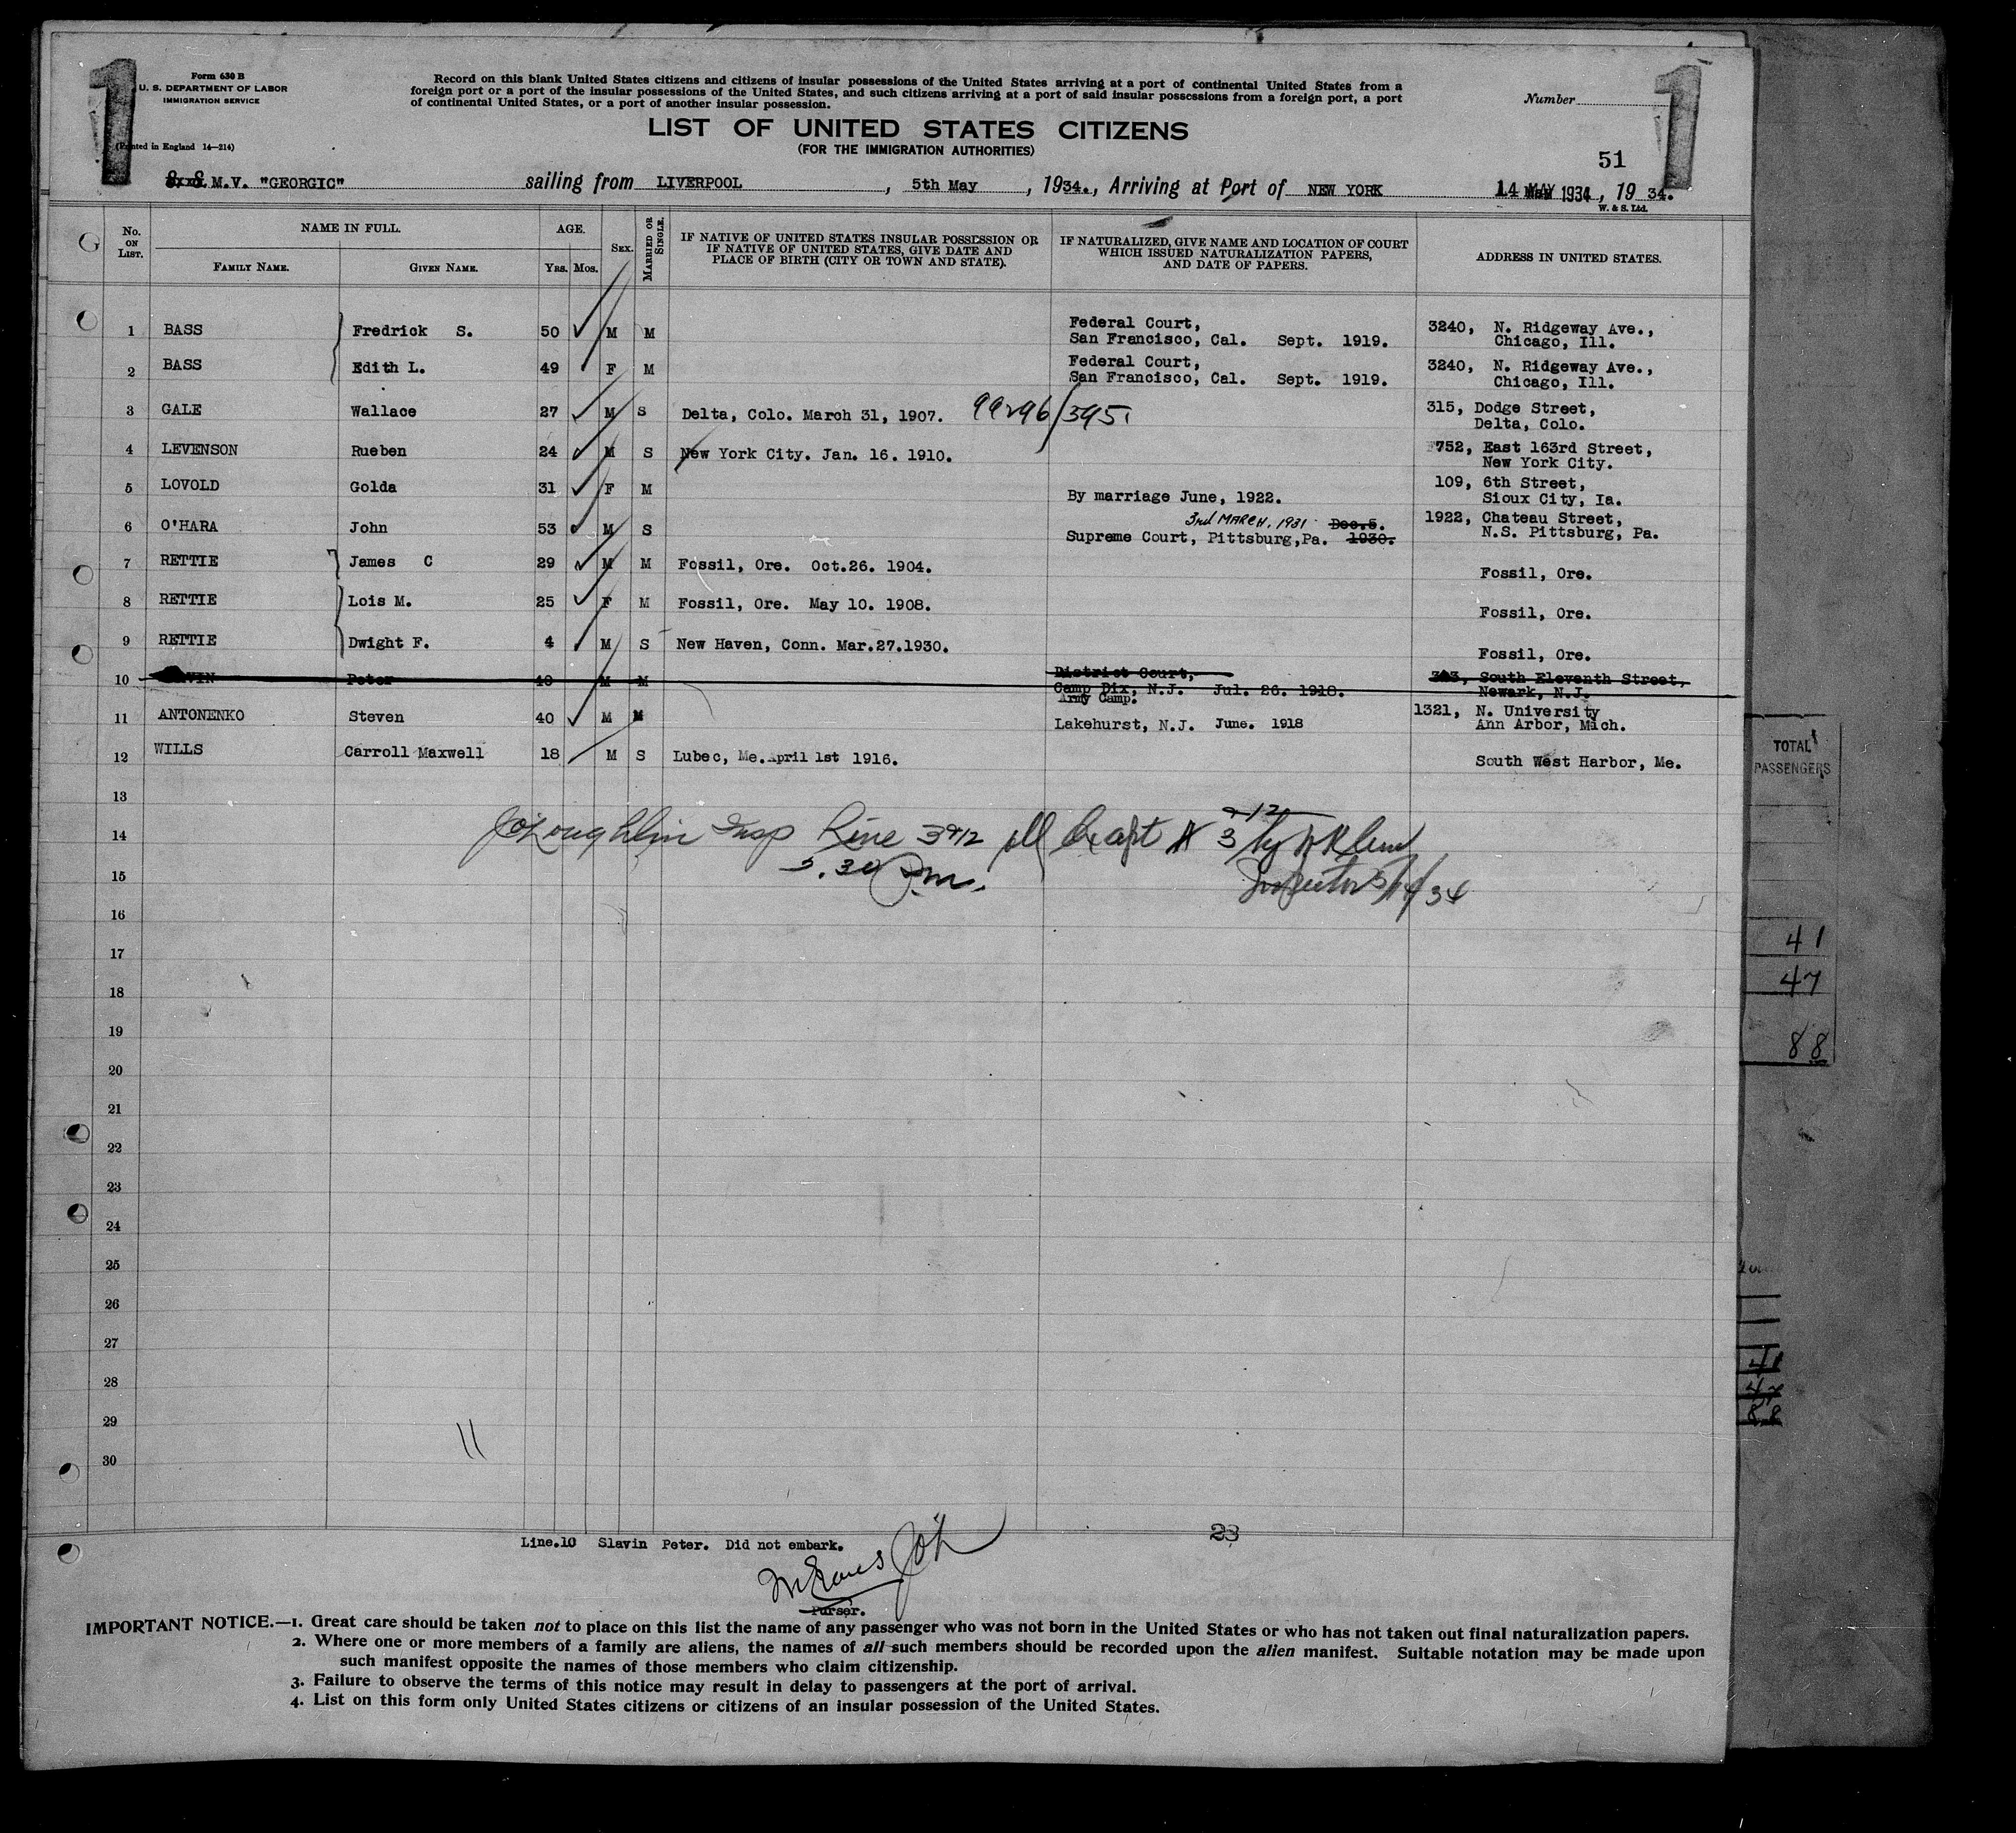 1
1
Form 630 B
U. S. DEPARTMENT OF LABOR
IMMIGRATION SERVICE
(Printed in England 14—214)
Record on this blank United States citizens and citizens of insular possessions of the United States arriving at a port of continental United States from a
foreign port or a port of the insular possessions of the United States, and such citizens arriving at a port of said insular possessions from a foreign port, a port
of continental United States, or a port of another insular possession.
Number
LIST OF UNITED STATES CITIZENS
(FOR THE IMMIGRATION AUTHORITIES)
51
M.V. "GEORGIC" sailing from LIVERPOOL, 5th May, 1934., Arriving at Port of NEW YORK 14 MAY 1934, 1934.
W. & S. Ltd.
No. ON LIST. NAME IN FULL. FAMILY NAME. GIVEN NAME. AGE. YRS. MOS. SEX. MARRIED OR SINGLE. IF NATIVE OF UNITED STATES INSULAR POSSESSION OR IF NATIVE OF UNITED STATES, GIVE DATE AND PLACE OF BIRTH (CITY OR TOWN AND STATE). IF NATURALIZED, GIVE NAME AND LOCATION OF COURT WHICH ISSUED NATURALIZATION PAPERS, AND DATE OF PAPERS. ADDRESS IN UNITED STATES.
1 BASS Fredrick S. 50 M M Federal Court, San Francisco, Cal. Sept. 1919. 3240, N. Ridgeway Ave., Chicago, Ill.
2 BASS Edith L. 49 F M Federal Court, San Francisco, Cal. Sept. 1919. 3240, N. Ridgeway Ave., Chicago, Ill.
3 GALE Wallace 27 M S Delta, Colo. March 31, 1907. 99296/395 315, Dodge Street, Delta, Colo.
4 LEVENSON Rueben 24 M S New York City. Jan. 16. 1910. 752, East 163rd Street, New York City.
5 LOVOLD Golda 31 F M By marriage June, 1922. 109, 6th Street, Sioux City, Ia.
6 O'HARA John 53 M S 3rd MARCH, 1931 Dec.5. Supreme Court, Pittsburg,Pa. 1930. 1922, Chateau Street, N.S. Pittsburg, Pa.
7 RETTIE James C 29 M M Fossil, Ore. Oct.26. 1904. Fossil, Ore.
8 RETTIE Lois M. 25 F M Fossil, Ore. May 10. 1908. Fossil, Ore.
9 RETTIE Dwight F. 4 M S New Haven, Conn. Mar.27.1930. Fossil, Ore.
10 Peter M M District Court, Camp Dix, N.J. Jul. 26. 1918. Army Camp. South Eleventh Street, Newark, N.J.
11 ANTONENKO Steven 40 M M Lakehurst, N.J. June. 1918 1321, N. University Ann Arbor, Mich.
12 WILLS Carroll Maxwell 18 M S Lubec, Me. April 1st 1916. South West Harbor, Me.
13
14
J O'Loughlin Insp Line 3 & 12 all except # 3 & 12 by
5.30 P.m.
Inspector 5/14/34
15
16
17
18
19
20
21
22
23
24
25
26
27
28
29
30
11
Line.10 Slavin Peter. Did not embark.
23
JO'L
Purser.
IMPORTANT NOTICE.—1. Great care should be taken not to place on this list the name of any passenger who was not born in the United States or who has not taken out final naturalization papers.
2. Where one or more members of a family are aliens, the names of all such members should be recorded upon the alien manifest. Suitable notation may be made upon
such manifest opposite the names of those members who claim citizenship.
3. Failure to observe the terms of this notice may result in delay to passengers at the port of arrival.
4. List on this form only United States citizens or citizens of an insular possession of the United States.
TOTAL
PASSENGERS
41
47
88
41
47
88